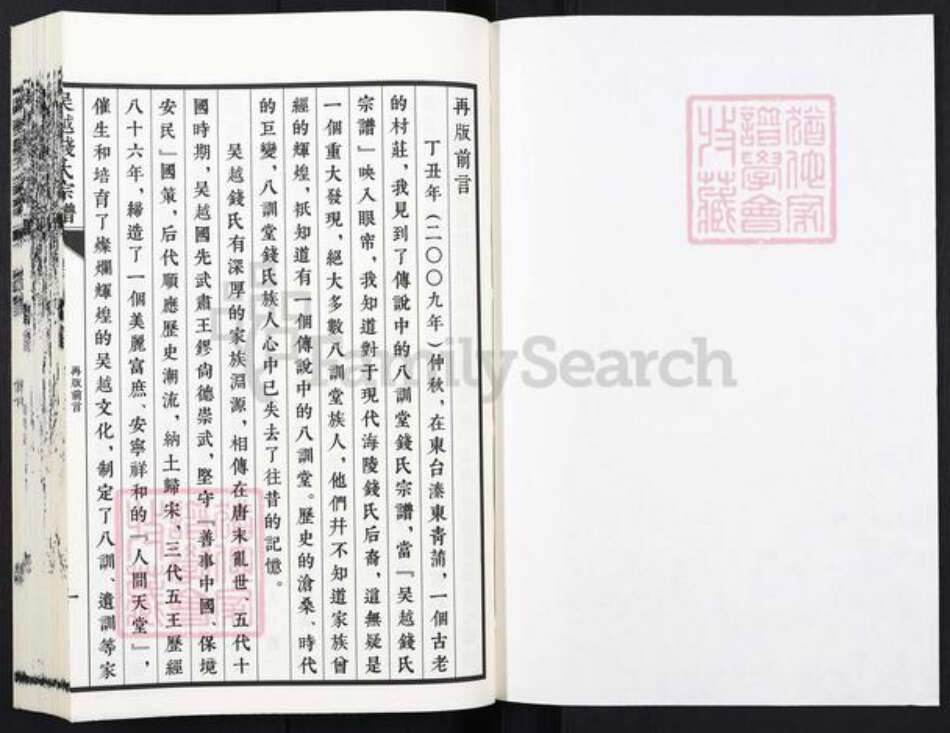 再版前言
丁丑年（二〇〇九年）仲秋，在東台溱東靑蒲，一個古老
的村莊，我見到了傳說中的八訓堂錢氏宗譜，當『吳越錢氏
宗譜』映入眼帘，我知道對于現代海陵錢氏后裔，這無疑是
一個重大發現，絕大多數八訓堂族人，他們幷不知道家族曾
經的輝煌，祇知道有一個傳說中的八訓堂。歷史的滄桑、時代
的巨變，八訓堂錢氏族人心中已失去了往昔的記憶。
吳越錢氏有深厚的家族淵源，相傳在唐末亂世、五代十
國時期，吳越國先武肅王鏐尙德崇武，堅守『善事中國、保境
安民』國策，后代順應歷史潮流，納土歸宋，三代五王歷經
八十六年，締造了一個美麗富庶、安寧祥和的『人間天堂』，
催生和培育了燦爛輝煌的吳越文化，制定了八訓、遺訓等家
吳越錢氏宗譜
再版前言
一
猶他家
譜學會
收藏
FamilySearch